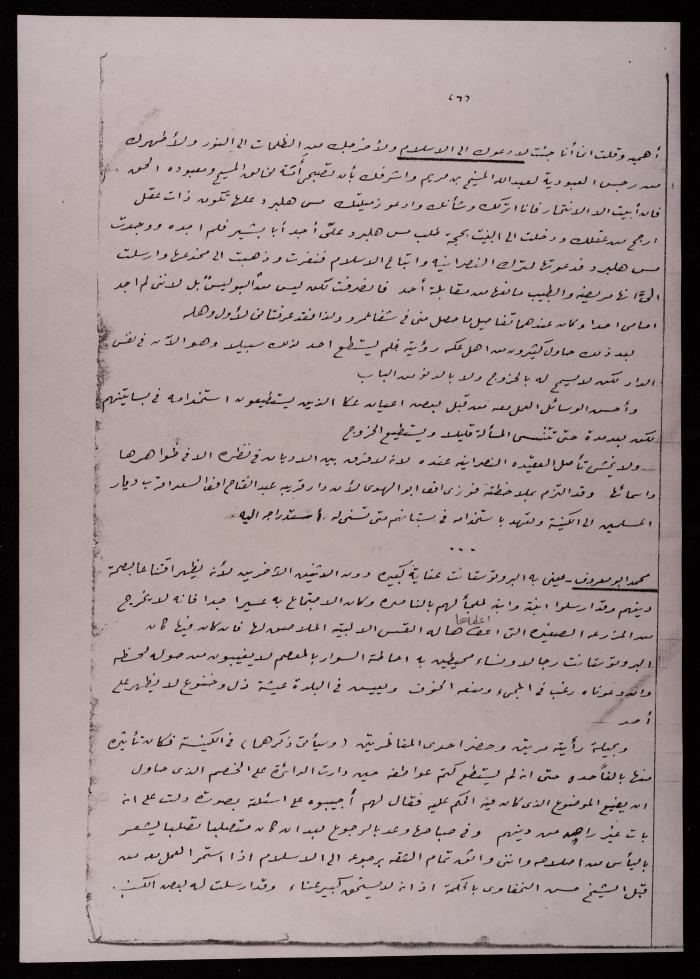 ٢٦٦
أهميه وقلت انما أنا جئت لادعوك الى الاسلام ولأخرجك من الظلمات الى النور ولأطهرك
من رجس العبودية لعبد الله المسيح بن مريم واشرفك بأن تصبحي أمَة لخالق المسيح ومعبوده الحق .
فان أبيت الا الانتحار فانا اتركك وشأنك وادعو زميلتك مس هلبرد علها تكون ذات عقل
ارجح من عقلك ودخلت الى البيت بحجة طلب مس هلبرد علّي أجد أبا بشير فلم اجده ووجدت
مس هلبرد فدعوتها لترك النصرانيه واتباع الاسلام فنفرت وذهبت الى مخدعها وارسلت
اليّ انها مريضه والطبيب مانعها من مقابلة أحد فانصرفت لكن ليس من البوليس بل لانني لم اجد
امامي احدا وكان عندهما تفاصيل ما حصل مني في شفاعمرو ولذا فقد عرفتاني لأول وهله
بعد ذلك حاول كثيرون من اهل عكه رؤيته فلم يستطع احد لذلك سبيلا وهو الآن في نفس
الدار لكن لا يسمح له بالخروج ولا بالدنو من الباب
وأحسن الوسائل العمل معه من قبل بعض اعيان عكا الذين يستطيعون استخدامه في بساتينهم
لكن بعد مدة حتى تتنسى المسألة قليلا ويستطيع الخروج
ولا يخشى تأصل العقيده النصرانيه عنده لانه لا فرق بين الاديان في نظره الا في ظواهرها
واسمائها وقد التزم بملاحظته فوزي افندي ابو الهوى لأن دار قريبه عبد الفتاح افندي السعد اقرب ديار
المسلمين الى الكنيسة وتعهد باستخدامه في بستانهم متى تسنى له استدراجه اليه
...
محمد ابو معروف - عني به البروتوستانت عناية كبيره دون الاثنين الآخرين لأنه يظهر اقتناعا بصحة
دينهم وقد ارسلوا ابنة وابنه لملجأ لهم بالناصره وكان الاجتماع به عسيرا جدا فانه لا يخرج
من المزرعه الصغيره التي اعطاها له القس الا لبيته الملاصق لها فان كان فيها كان
البروتوستانت رجالا ونساء محيطين به احاطة السوار بالمعصم لا يغيبون من حوله لحظه
وان دعوناه رغب في المجيء ومنعه الخوف ويعيش في البلدة عيشة ذل وخضوع لا يظهر على
أحد
وبحيلة رأيته مرتين وحضر احدى المناظرتين ( وسيأتي ذكرها ) في الكنيسة فكان تأثيره
منها بالغا حده حتى انه لم يستطع كتم عواطفه حين دارت الدائرة على الخصم الذي حاول
ان يضيع الموضوع الذي كان فيه الحكم عليه فقال لهم أجيبوه على اسئلته بصورة دلت على انه
بات غير راض من دينهم وفي صباحها وعد بالرجوع بعد ان كان متصلبا تصلبا يشعر
باليأس من اصلاحه وانني واثق تمام الثقه برجوعه الى الاسلام اذا استمر العمل معه من
قبل الشيخ حسن النحفاوي بالحكمة اذ انه لا يستحق كبير عناء وقد ارسلت له بعض الكتب .